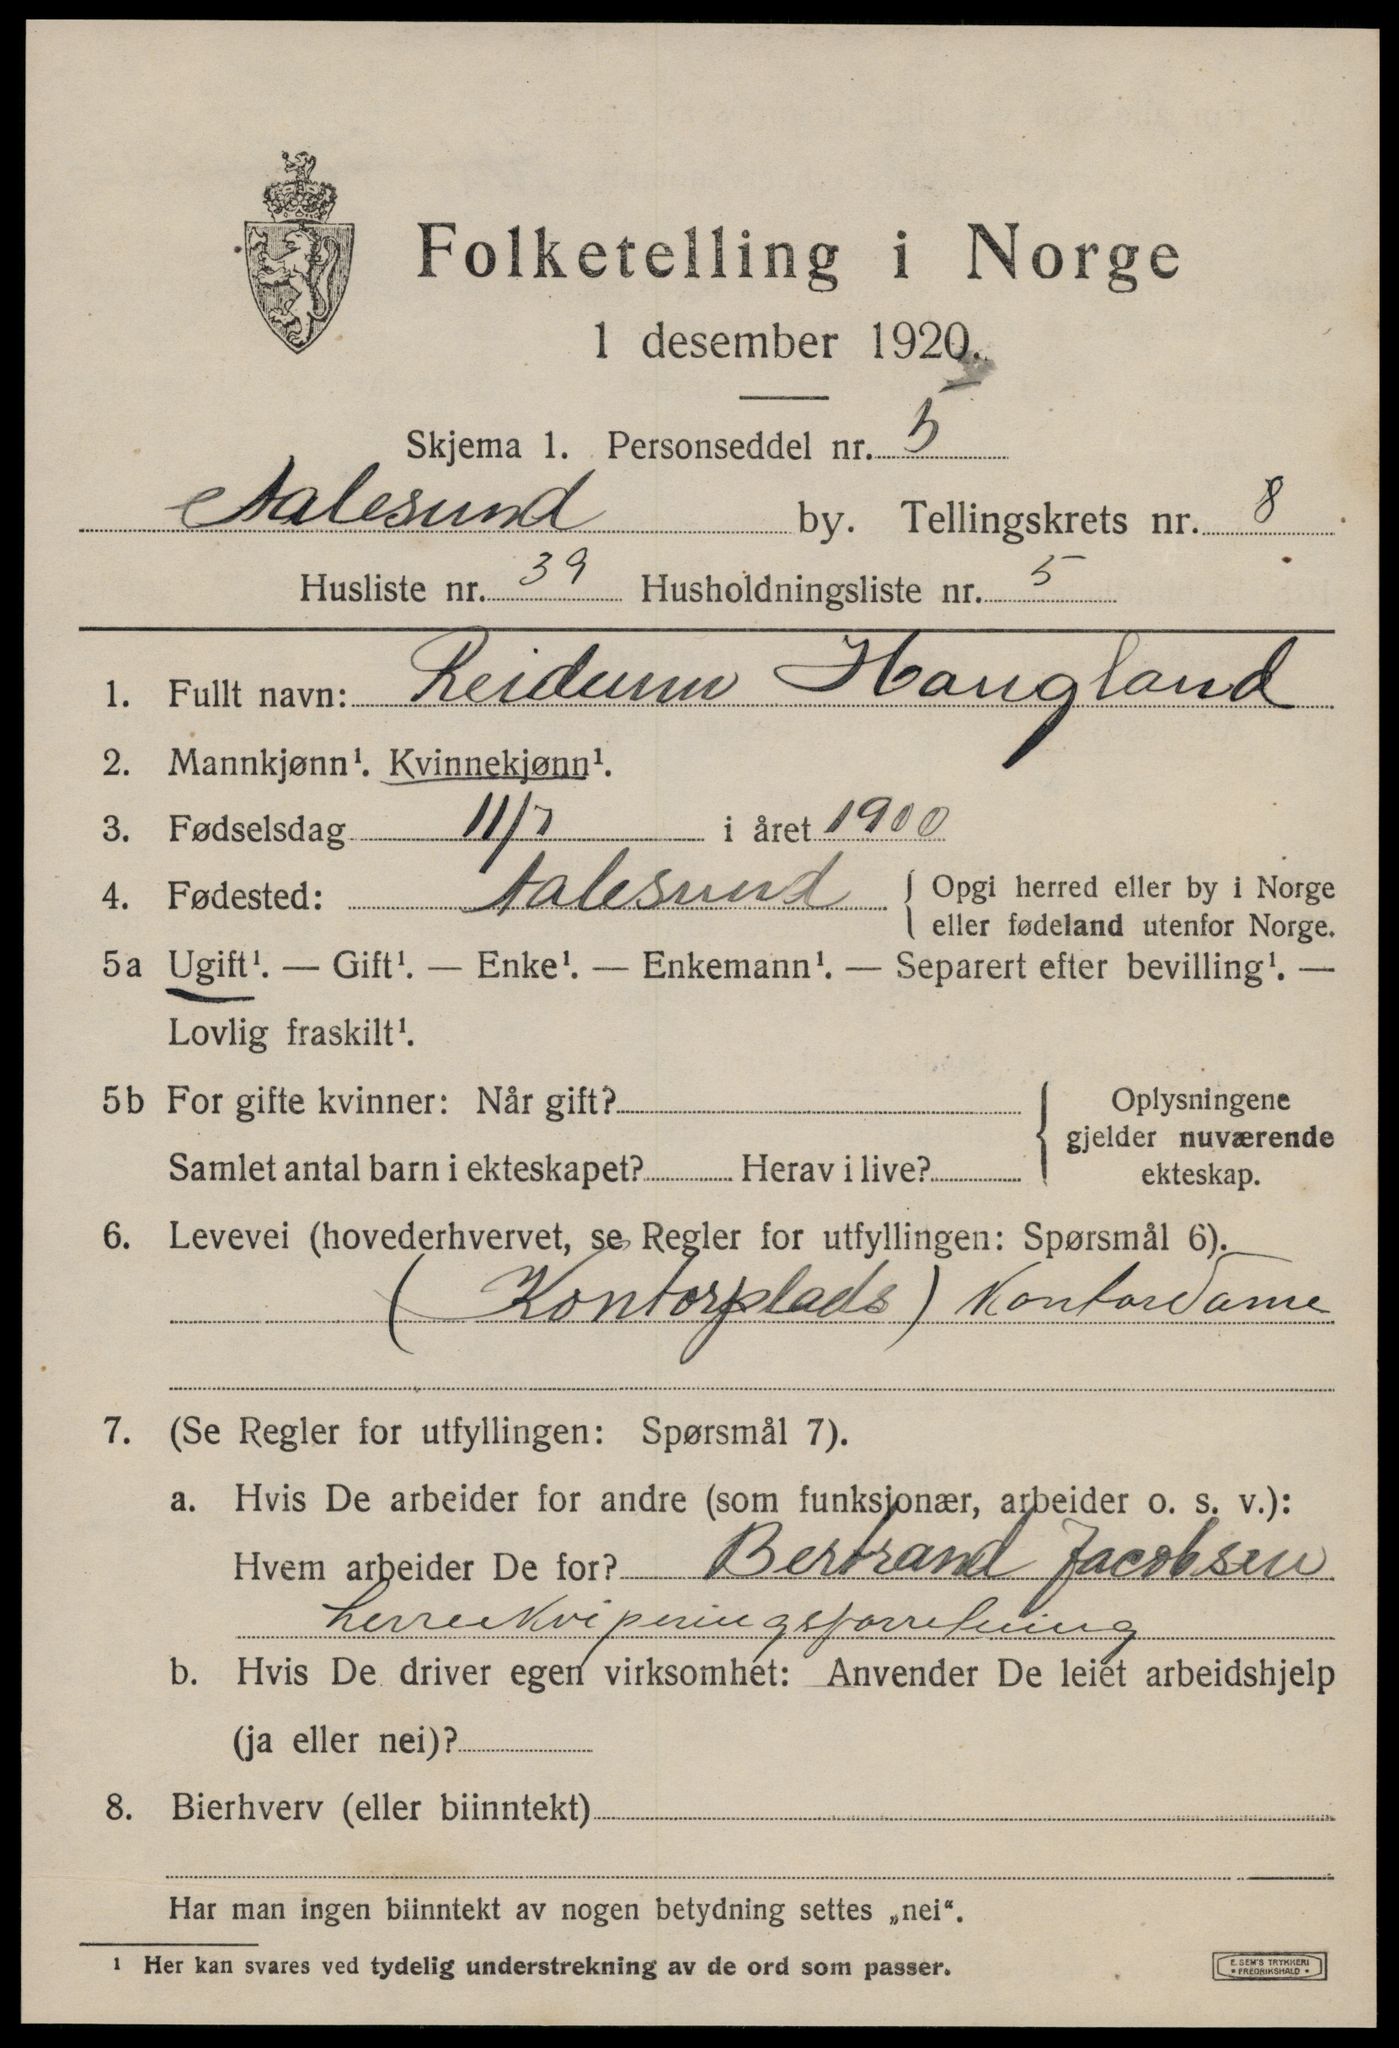 Folketelling i Norge
1 desember 1920.
Skjema 1. Personseddel nr. 5
Aalesund by. Tellingskrets nr. 8
Husliste nr. 39 Husholdningsliste nr. 5
1. Fullt navn: Reidunn Haugland
2. Mannkjønn¹. Kvinnekjønn¹.
3. Fødselsdag 11/7 i året 1900
4. Fødested: Aalesund { Opgi herred eller by i Norge
eller fødeland utenfor Norge.
5a Ugift¹. — Gift¹. — Enke¹. — Enkemann¹. — Separert efter bevilling¹. —
Lovlig fraskilt¹.
5b For gifte kvinner: Når gift? { Oplysningene
gjelder nuværende
Samlet antal barn i ekteskapet? Herav i live? ekteskap.
6. Levevei (hovederhvervet, se Regler for utfyllingen: Spørsmål 6).
(Kontorplads) Kontordame
7. (Se Regler for utfyllingen: Spørsmål 7).
a. Hvis De arbeider for andre (som funksjonær, arbeider o. s. v.):
Hvem arbeider De for? Bertrand Jacobsen
herreekviperingsforretning
b. Hvis De driver egen virksomhet: Anvender De leiet arbeidshjelp
(ja eller nei)?
8. Bierhverv (eller biinntekt)
Har man ingen biinntekt av nogen betydning settes „nei“.
¹ Her kan svares ved tydelig understrekning av de ord som passer.
E. SEM'S TRYKKERI
* FREDRIKSHALD *